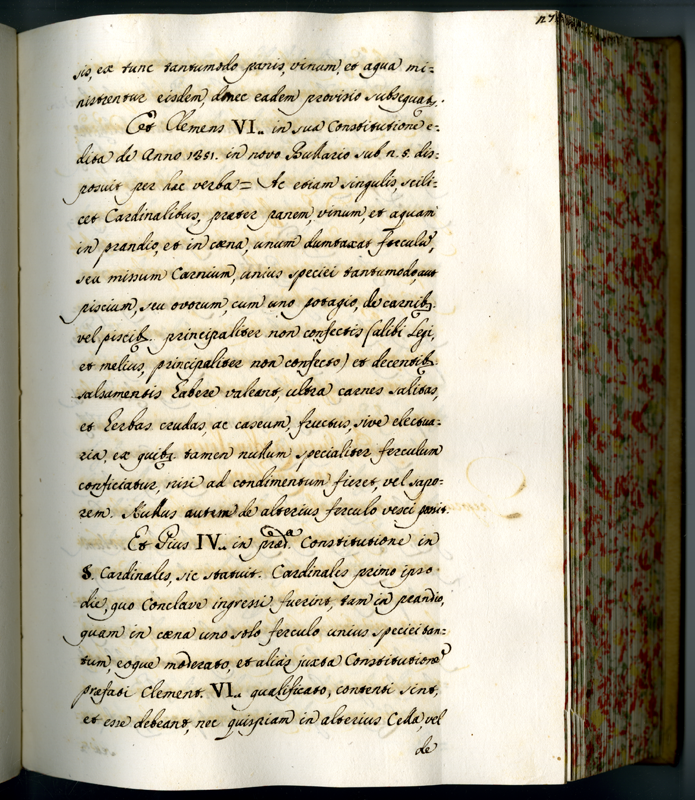 127
sis, ex tunc tantumodo panis, vinum, et aqua mi=
nistrentur eisdem, donec eadem provisio subsequat.
Et Clemens VI.. in sua Constitutione e=
dita de Anno 1351. in novo Bullario sub n. 5. dis=
posuit per hæc verba = Ac etiam singulis, scili=
cet Cardinalibus, præter panem, vinum, et aquam
in prandio, et in cœna, unum dumtaxat ferculũ,
seu missum Carnium, unius speciei tantumodo, aut
piscium, seu ovorum, cum uno potagio, de carnib.
vel piscib. principaliter non confectis (alibi Legi,
et melius, principaliter non confecto) et decentib.
salsamentis habere valeant, ultra carnes salitas,
et herbas crudas, ac caseum, fructus, sive electua=
ria, ex quibq tamen nullum specialiter ferculum
conficiatur, nisi ad condimentum fieret, vel sapo=
rem. Nullus autem de alterius ferculo vesci possit.
Et Pius IV.. in præd.ª Constitutione in
§. Cardinales, sic statuit. Cardinales primo ipso
die, quo Conclave ingressi fuerint, tam in prandio,
quam in cœna uno solo ferculo unius speciei tan=
tum, eoque moderato, et aliàs juxta Constitutionẽ
præfati Clement. VI.. qualificato, contenti sint,
et esse debeant, nec quispiam in alterius Cella, vel
de